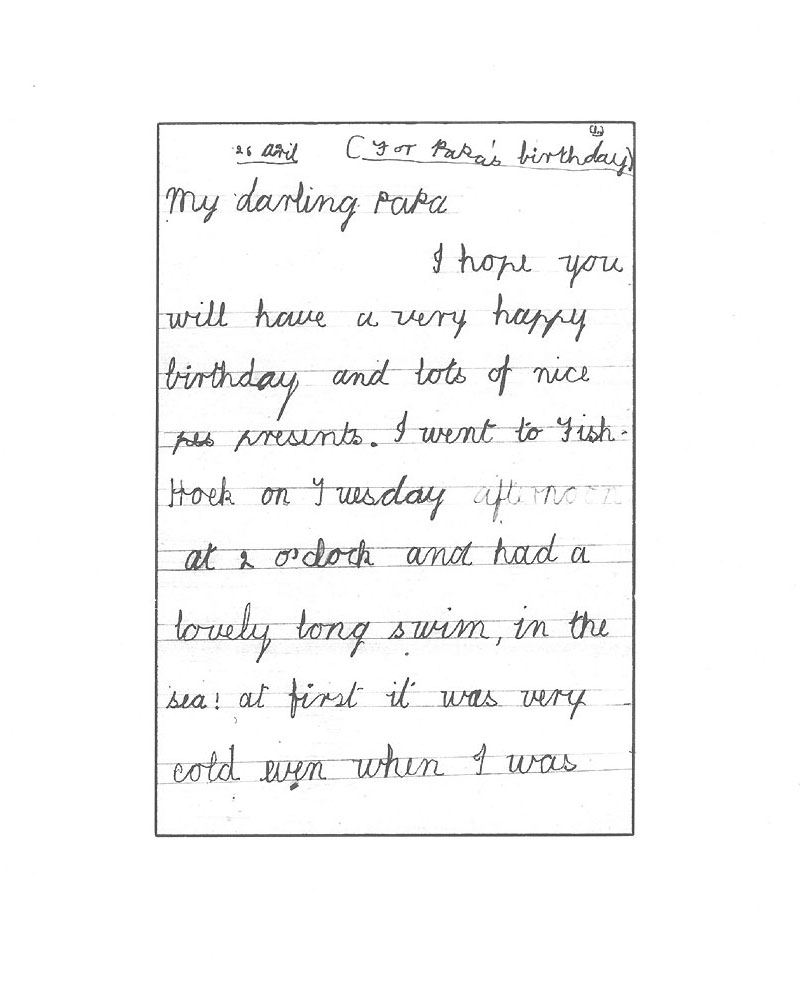 26 April (For Papa's birthday)
My darling Papa
I hope you
will have a very happy
birthday and lots of nice
presents. I went to Fish-
Hoek on Tuesday afternoon
at 2 o'clock and had a
lovely long swim, in the
sea! at first it was very
cold even when I was